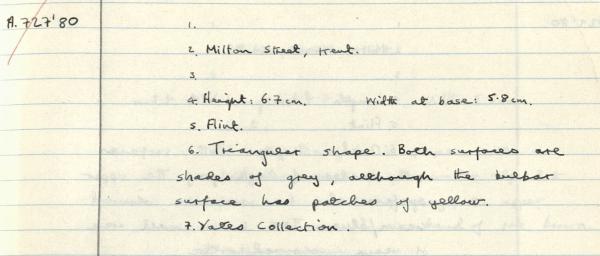 A.727'80
1.
2. Milton Street, Kent.
3.
4. Height: 6.7cm. Width at base: 5.8cm.
5. Flint.
6. Triangular shape. Both surfaces are
shades of grey, although the bulbar
surface has patches of yellow.
7. Yates Collection.